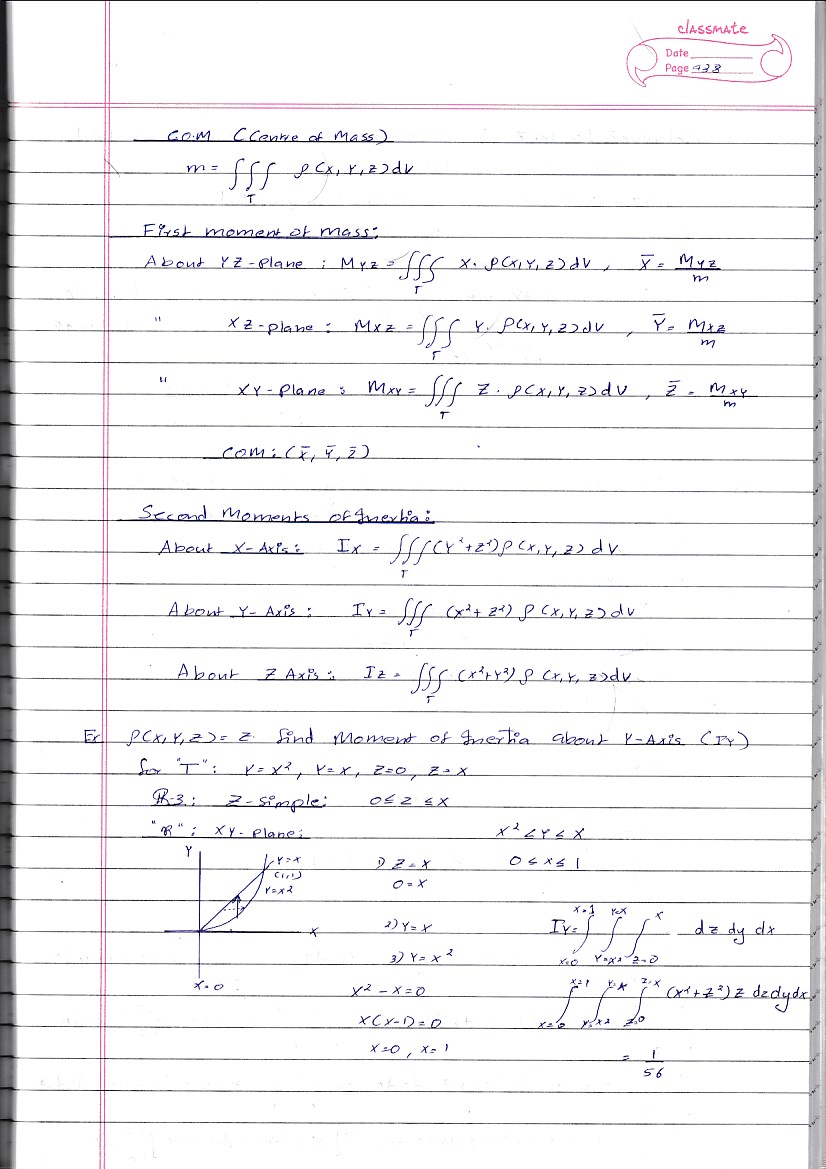 classmate
Date
Page 938
C.O.M (Centre of Mass)
m = ∭_T ρ(x, y, z) dv
First moment of mass:
About YZ-plane : Myz = ∭_T x · ρ(x, y, z) dv , x̄ = Myz/m
" XZ-plane : Mxz = ∭_T y · ρ(x, y, z) dv , ȳ = Mxz/m
" XY-plane : Mxy = ∭_T z · ρ(x, y, z) dv , z̄ = Mxy/m
COM : (x̄, ȳ, z̄)
Second Moments of Inertia :
About X-Axis : Ix = ∭_T (y²+z²) ρ(x, y, z) dv
About Y-Axis : Iy = ∭_T (x²+z²) ρ(x, y, z) dv
About Z Axis : Iz = ∭_T (x²+y²) ρ(x, y, z) dv
Ex ρ(x, y, z) = z. find Moment of Inertia about Y-Axis (Iy)
for "T" : y = x², y = x, z = 0, z = x
R-3 : Z-simple : 0 ≤ z ≤ x
"R" : XY-plane : x² < y < x
Y y = x 1) z = x 0 ≤ x ≤ 1
(1,1) 0 = x
y = x2
x 2) y = x Iy = ∫_{x=0}^{x=1} ∫_{y=x²}^{y=x} ∫_{z=0}^{x} dz dy dx
3) y = x²
x = 0 x² - x = 0 ∫_{x=0}^{x=1} ∫_{y=x²}^{y=x} ∫_{z=0}^{z=x} (x²+z²) z dz dy dx
x(x-1) = 0
x = 0 , x = 1 = 1/56